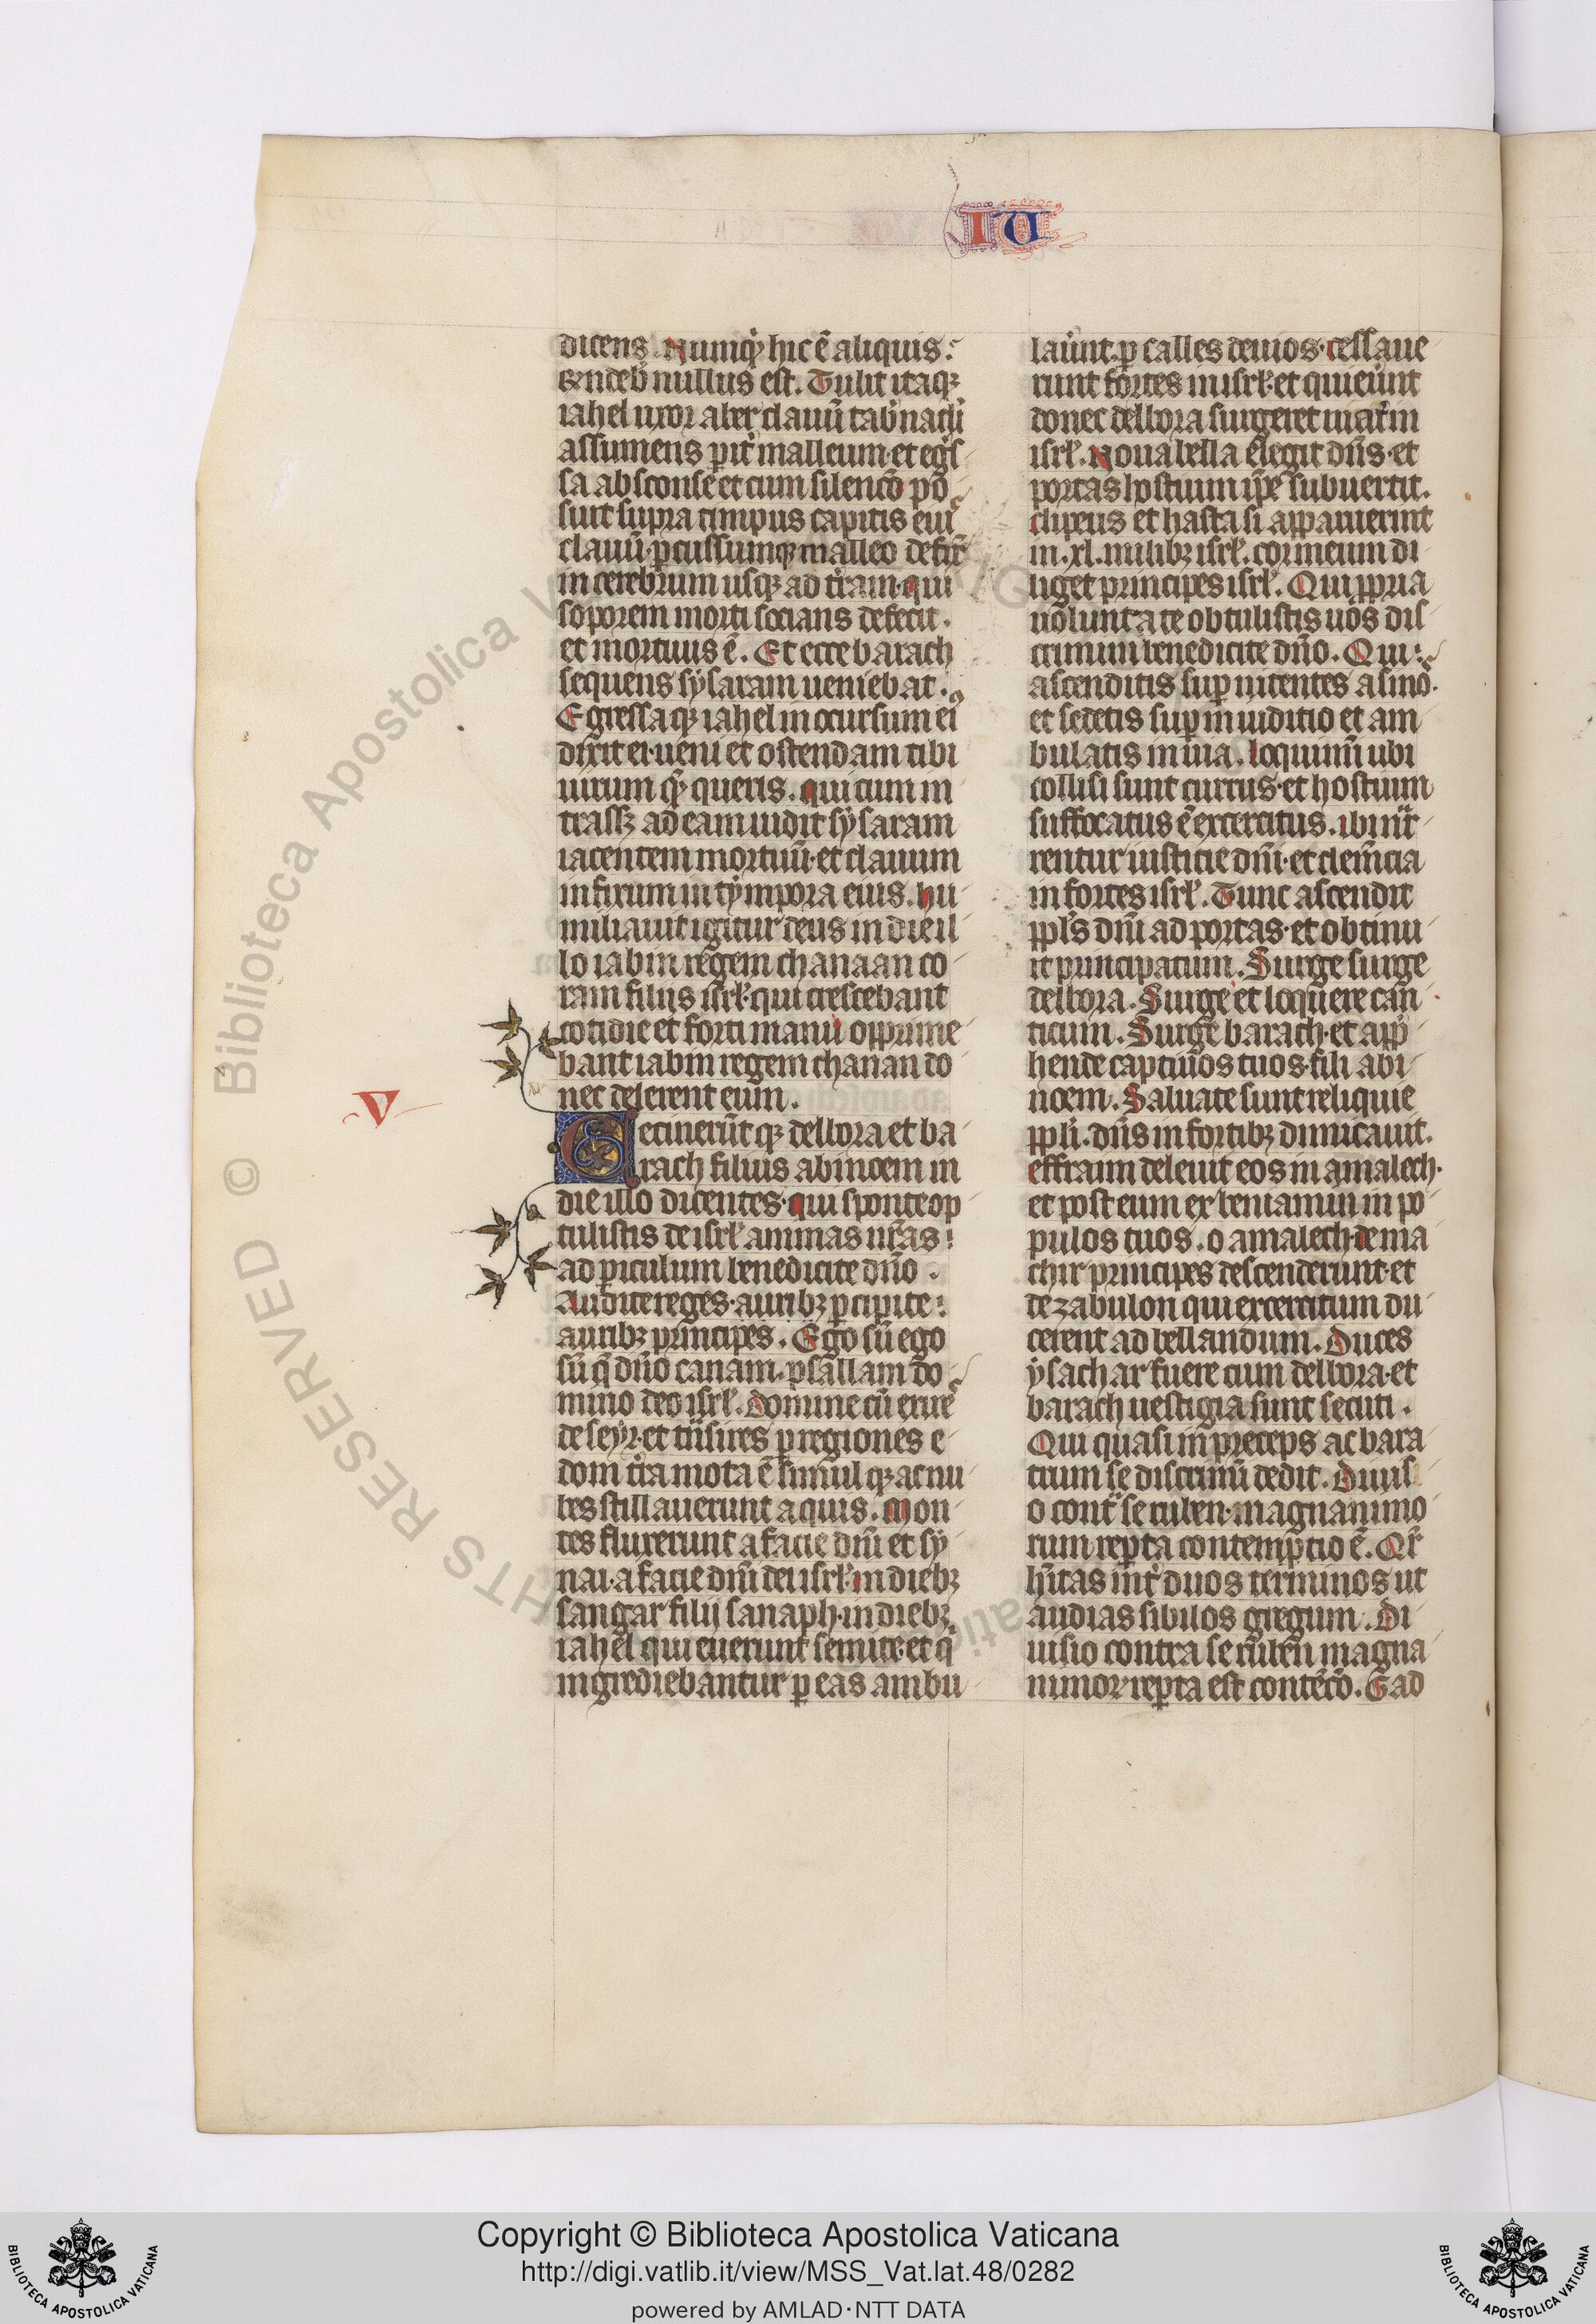 IU
dicens. Numq̇ hic ē aliquis.
Rn̄deb̄ nullus est. Tulit itaqꝫ
iahel uxor aber clauū tab̄nac̄li
assumens pit̄ malleum· et eg̃s
sa absconse et cum silencō po
suit supra timpus capitis eiꝰ
clauū· ꝑcussumqꝫ malleo defix̄
in cerebrum usqꝫ ad tr̄am· qui
soporem morti socians defecit.
et mortuus ē. Et ecce barach
sequens sẏsaram ueniebat.
Egressaqꝫ iahel in occursum eiꝰ
dixit ei· ueni et ostendam tibi
uirum q̄ queris. qui cum in
trassꝫ ad eam uidit sẏsaram
iacentem mortuū· et clauum
infixum in tẏmpora eius. hu
miliauit igitur deus in die il
lo iabin regem chanaan co
ram filijs isrl̄· qui crescebant
cotidie et forti manu opprime
bant iabin regem chanan do
nec delerent eum.
V
Cecineru̅tqꝫ delbora et ba
rach filius abinoem in
die illo dicentes· qui sponte op
tulistis de isrl̄ animas ur̄as
ad ꝑiculum benedicite dn̄o.
Audite reges· auribꝫ ꝑcipite
auribꝫ principes. Ego sū ego
sū q̄ dn̄o canam. psallam do
mino deo isrl̄. Domine cū exirēs
de seẏr· et tn̄sires ꝑ regiones e
dom tr̄a mota ē simul qꝫ ac nu
bes stillauerunt aquis. Mon
tes fluxerunt a facie dn̄i et sẏ
nai· a facie dn̄i dei isrl̄· in diebꝫ
sangar filij sanaph· in diebꝫ
iahel quieuerunt semite· et q̇
ingrediebantur ꝑ eas ambu
laūnt· ꝑ calles deuios· cessaue
runt fortes in isrl̄· et quieūnt
donec delbora surgeret mat̄ in
isrl̄. Noua bella elegit dn̄s· et
portas hostium ip̄e subuertit.
clipeus et hasta si apparuerint
in· xl· milibꝫ isrl̄. cor meum di
liget principes isrl̄. Qui ppria
uoluntate obtulistis uos dis
crimini benedicite dn̄o. Qui
ascenditis suꝑ nitentes asinos.
et sedetis suꝑ in iuditio et am
bulatis in uia. loquunt̄ ubi
collisi sunt currus· et hostium
suffocatus ē exercitus. ibi nar̄
rentur iusticie dn̄i· et clem̄cia
in fortes isrl̄. Tunc ascendit
ppl̄s dn̄i ad portas· et obtinu
it principatum. Surge surge
delbora. Surge et loquere can
ticum. Surge barach· et app̄
hende captiuos tuos· fili abi
noem. Saluate sunt reliquie
ppl̄i. dn̄s in fortibꝫ dimicauit.
effraim deleuit eos in amalech·
et post eum ex beniamin in po
pulos tuos. o amalech· de ma
chir principes descenderunt· et
de zabulon qui exercitum du
cerent ad bellandum. Duces
ẏsachar fuere cum delbora· et
barach uestigia sunt secuti.
Qui quasi in preceps ac bara
trum se discrimī dedit. Diuis
o cont̄ se ruben· magnanimo
rum reꝑta contemptio ē. Qr̄
hītas int̄ duos terminos ut
audias sibilos gregum. Di
uisio contra se ruben magna
nimoꝝ reꝑta est contēcō. Gad
Copyright © Biblioteca Apostolica Vaticana
http://digi.vatlib.it/view/MSS_Vat.lat.48/0282
powered by AMLAD·NTT DATA